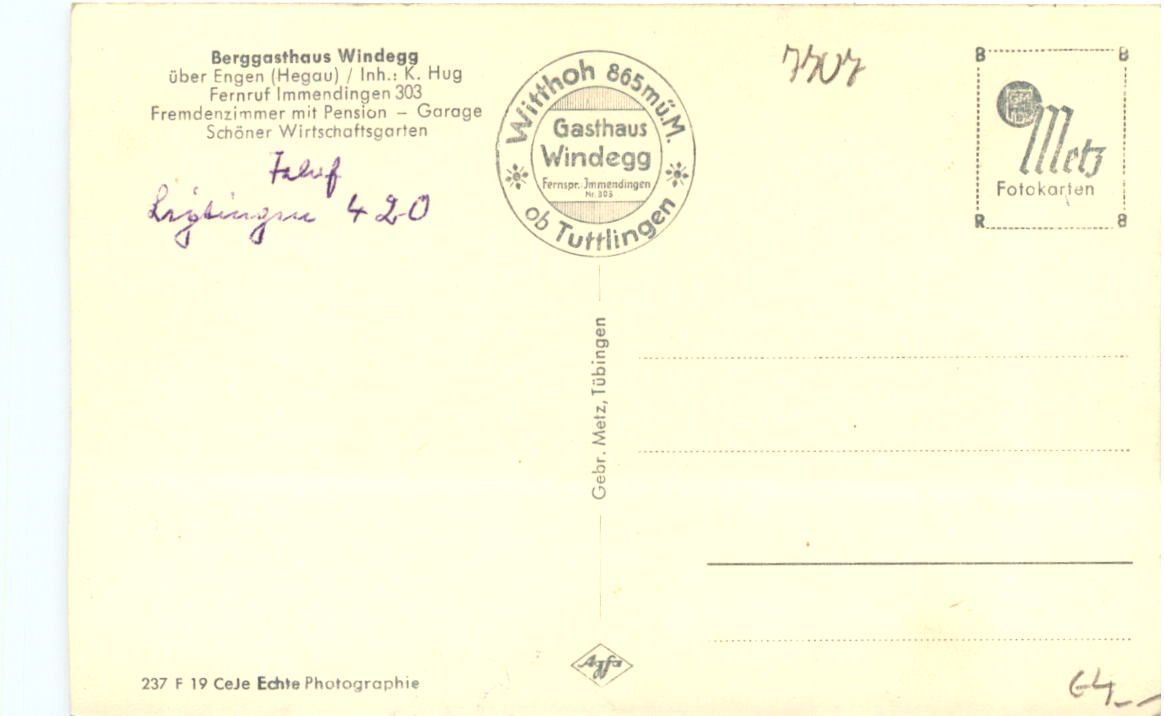 Berggasthaus Windegg
über Engen (Hegau) / Inh.: K. Hug
Fernruf Immendingen 303
Fremdenzimmer mit Pension – Garage
Schöner Wirtschaftsgarten
420
Witthoh 865mü.M.
Gasthaus
Windegg
Fernspr.: Immendingen
Nr. 303
ob Tuttlingen
7707
B B
Metz
Fotokarten
R 8
Gebr. Metz, Tübingen
237 F 19 CeJe Echte Photographie
Agfa
64